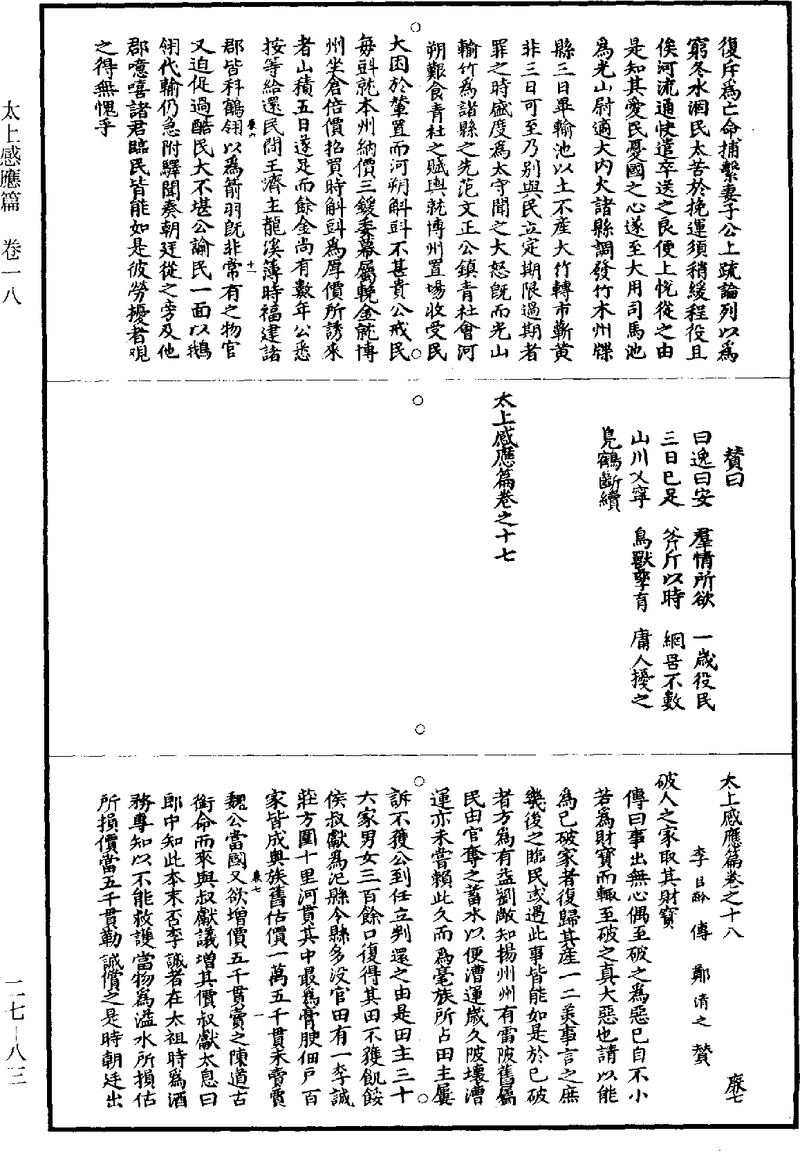 太上感應篇 卷一八
二七—八三
復斥為亡命捕繫妻子公上疏論列以為
窮冬水涸民太苦於挽運須稍緩程役且
俟河流通快遣卒送之良便上悅從之由
是知其愛民憂國之心遂至大用司馬池
為光山尉適大內大諸縣調發竹木州牒
縣三日畢輸池以土不產大竹轉市蘄黃
非三日可至乃別與民立定期限過期者
罪之時盛度為太守聞之大怒既而光山
輸竹為諸縣之先范文正公鎮青社會河
朔艱食青社之賦輿就博州置場收受民
大困於輦置而河朔斛㪷不甚貴公戒民
每㪷就本州納價三鍰委幕屬輓金就博
州坐倉倍價招買時斛㪷為厚價所誘來
者山積五日遂足而餘金尚有數年公悉
按等給還民間王濟主龍溪簿時福建諸
郡皆科鶴翎以為箭羽既非常有之物官
又迫促過酷民大不堪公諭民一面以鵝
翎代輸仍急附驛聞奏朝廷從之旁及他
郡噫嘻諸君臨民皆能如是彼勞擾者觀
之得無愧乎
贊曰
曰逸曰安 羣情所欲 一歲役民
三日已足 斧斤以時 網罟不數
山川乂寧 鳥獸孳育 庸人擾之
鳧鶴斷續
太上感應篇卷之十七
太上感應篇卷之十八 廉七
李昌齡 傳 鄭清之 贊
破人之家取其財寶
傳曰事出無心偶至破之為惡已自不小
若為財寶而輒至破之真大惡也請以能
為已破家者復歸其產一二美事言之庶
幾後之臨民或遇此事皆能如是於已破
者方為有益劉敞知揚州州有雷陂舊屬
民由官奪之蓄水以便漕運歲久陂壞漕
運亦未嘗賴此久而為豪族所占田主屢
訴不獲公到任立判還之由是田主三十
六家男女三百餘口復得其田不獲飢餒
侯叔獻為汜縣令縣多没官田有一李誠
莊方圓十里河貫其中最為膏腴佃戶百
家皆成興族舊估價一萬五千貫未賣賈
魏公當國又欲增價五千貫賣之陳道古
銜命而來與叔獻議增其價叔獻太息曰
郎中知此本末否李誠者在太祖時為酒
務專知以不能救護當物為溢水所損估
所損價當五千貫勒誠償之是時朝廷出